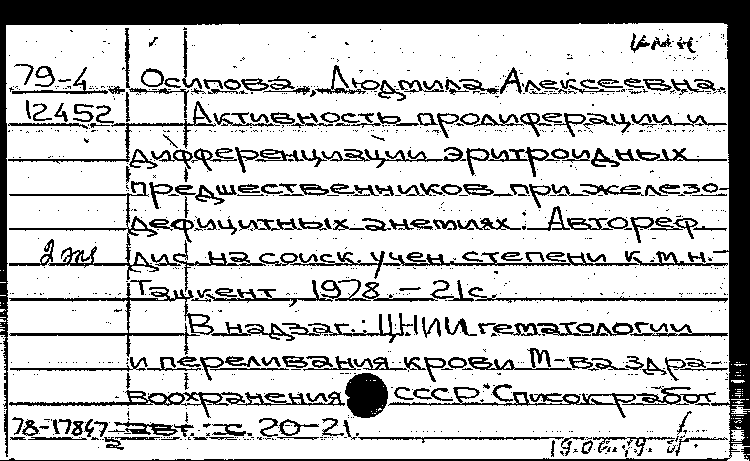 кмн
79-4 Осипова, Людмила Алексеевна.
12452 Активность пролиферации и
дифференциации эритроидных
предшественников при железо-
дефицитных анемиях: Автореф.
2 экз дис. на соиск. учен. степени к.м.н.-
Ташкент, 1978. - 21с.
В надзаг.: ЦНИИ гематологии
и переливания крови М-ва здра-
воохранения СССР. Список работ
78-17847 авт.: с. 20-21.
2